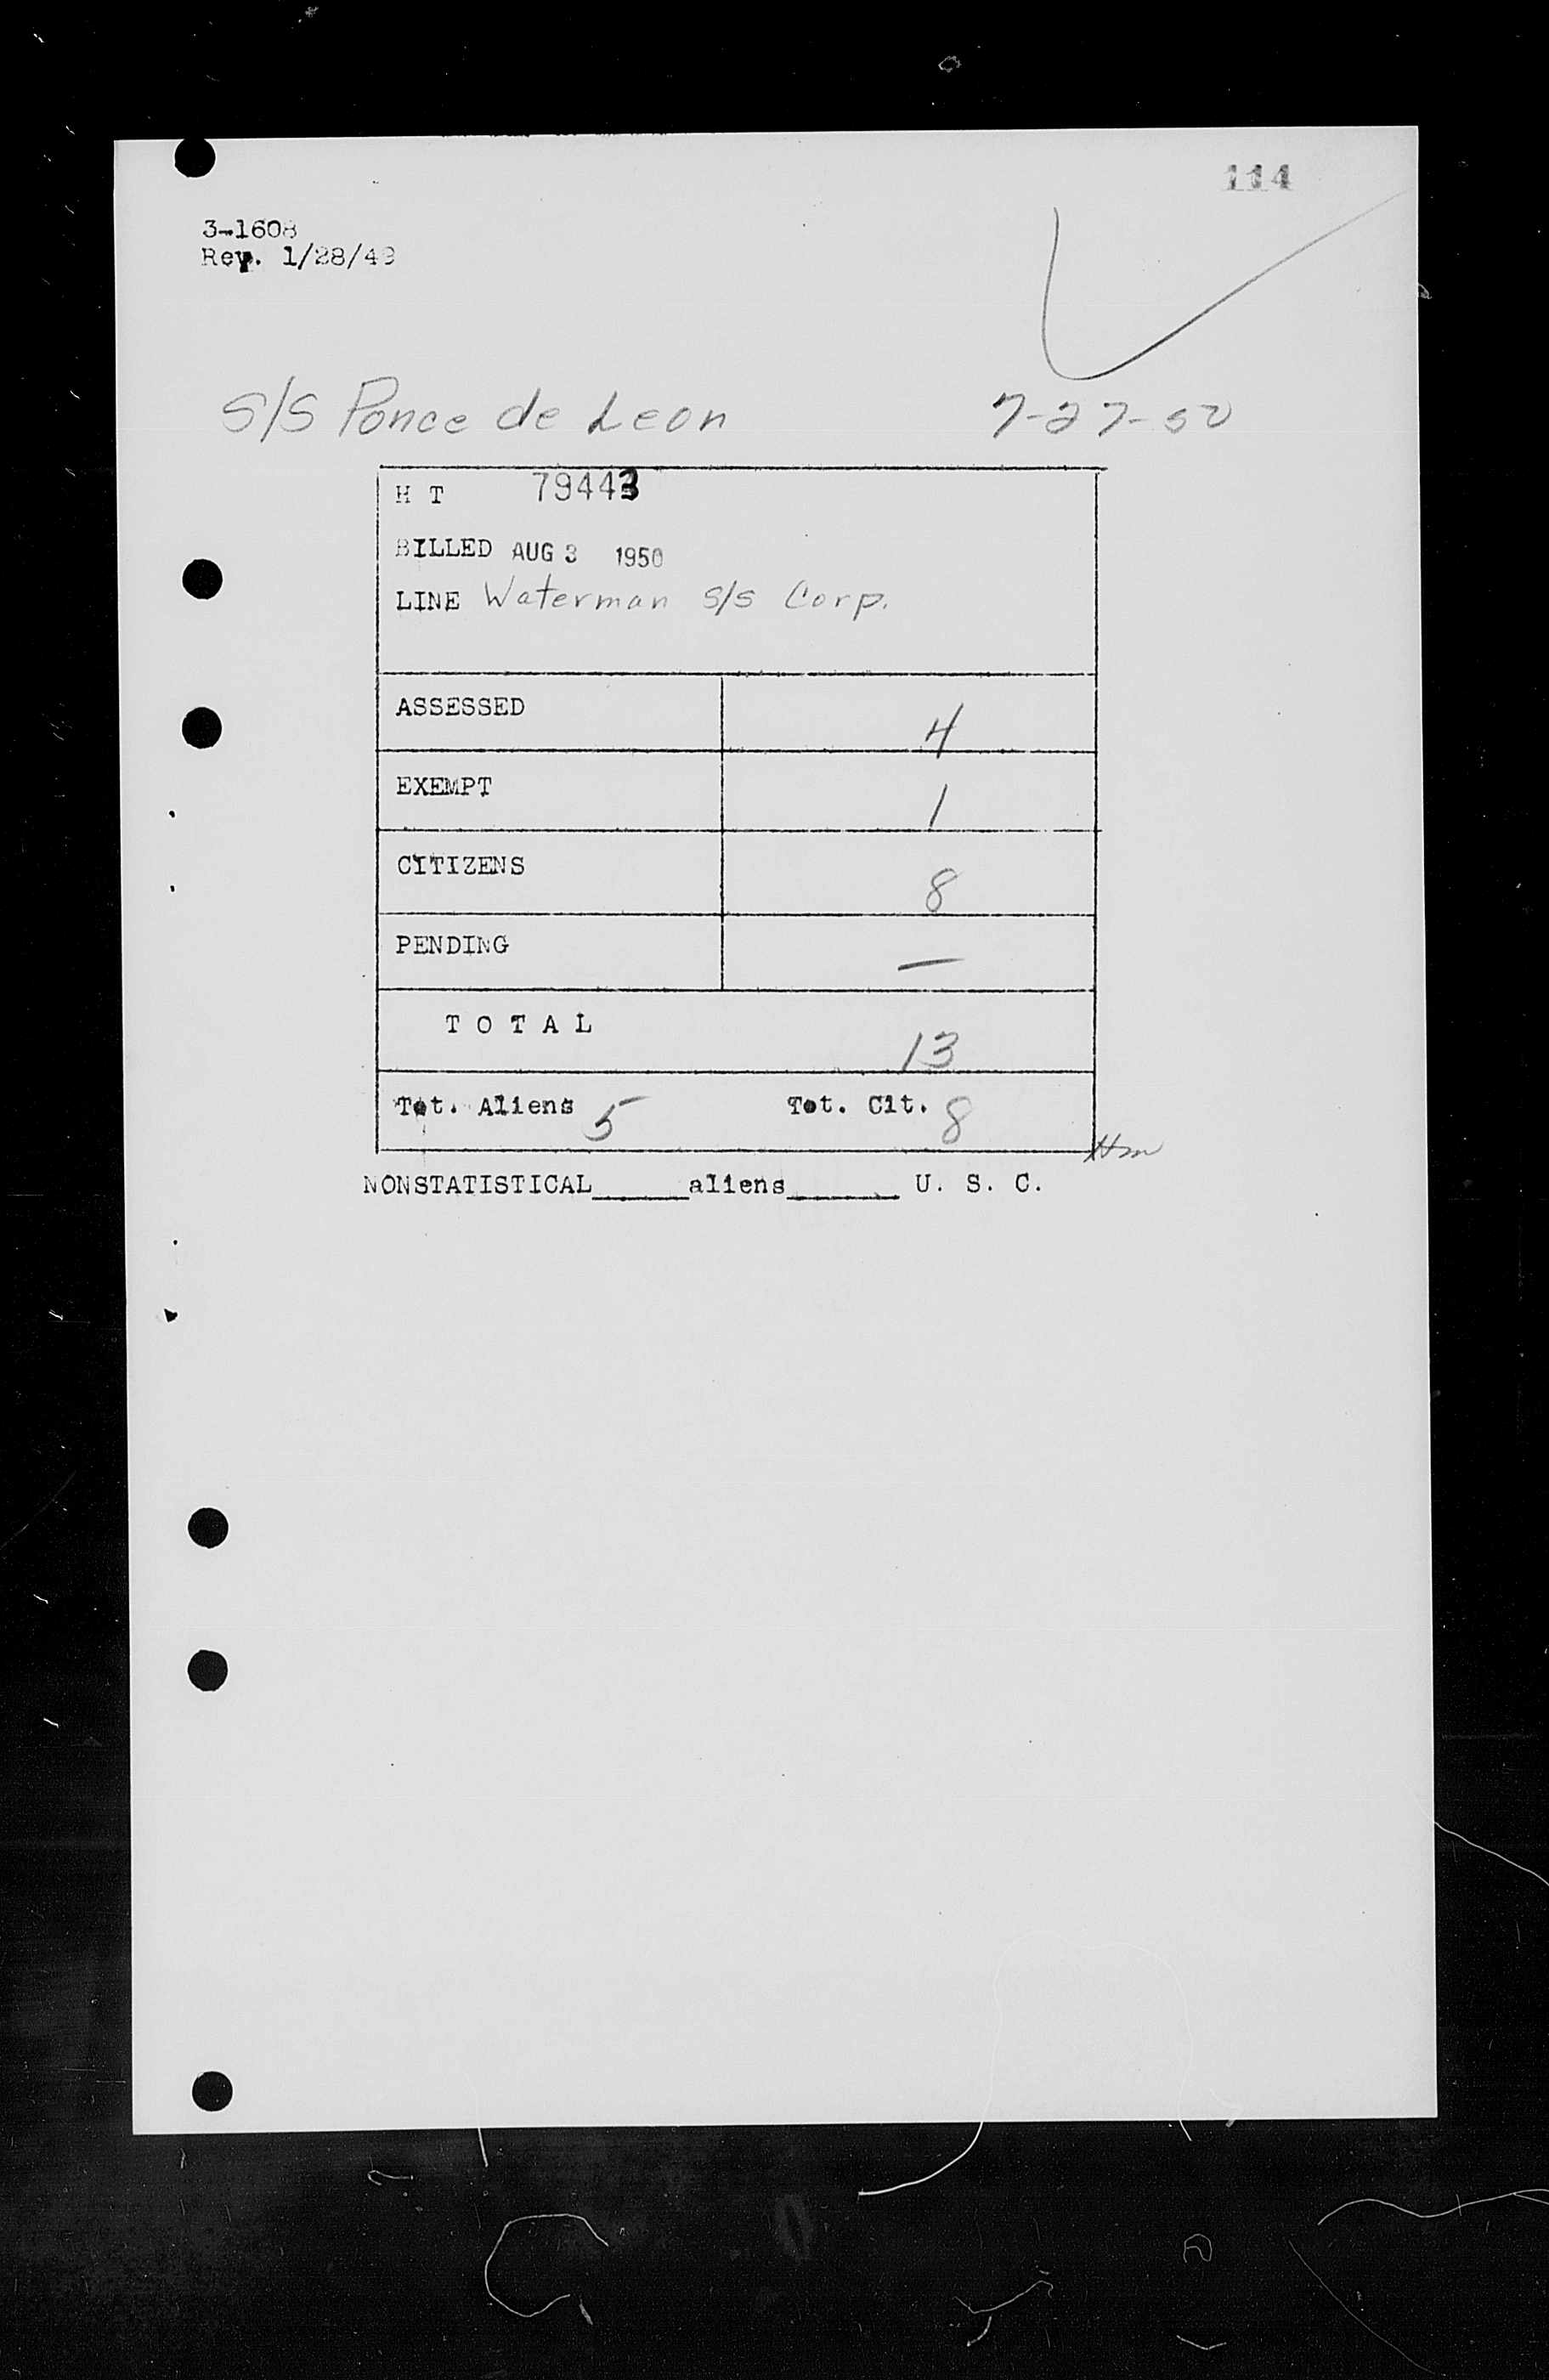 114
3-1608
Rev. 1/28/49
S/S Ponce de Leon 7-27-50
H T 79443
BILLED AUG 3 1950
LINE Waterman S/S Corp.
ASSESSED 4
EXEMPT 1
CITIZENS 8
PENDING —
T O T A L 13
Tot. Aliens 5 Tot. Cit. 8
NONSTATISTICAL_____aliens______ U. S. C.